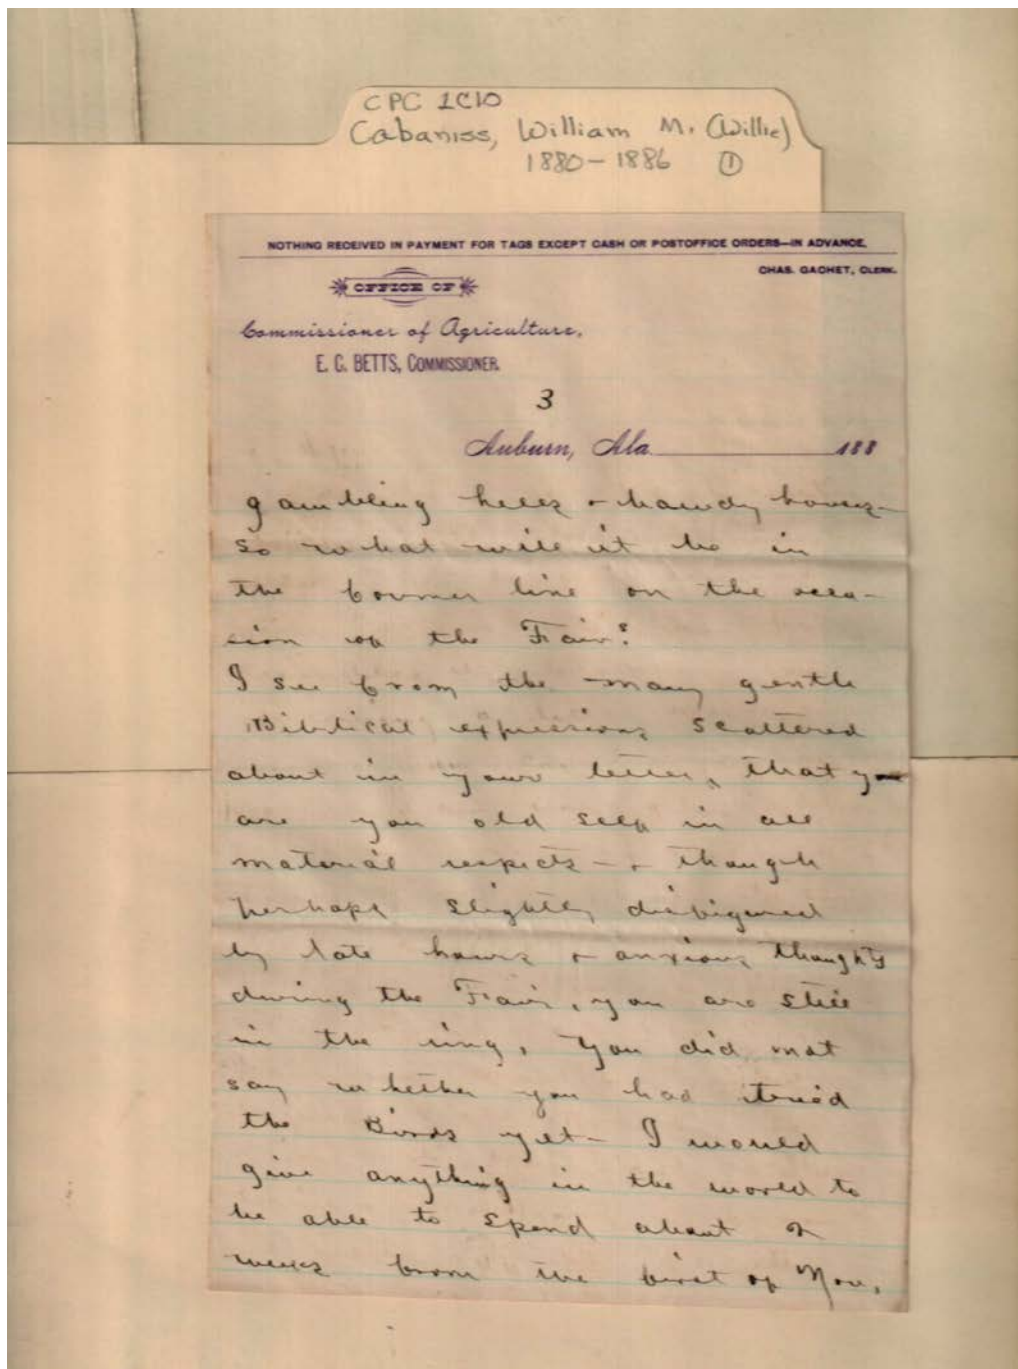 CPC 1C10
Cabaniss, William M. (Willie)
1880-1886 ①
NOTHING RECEIVED IN PAYMENT FOR TAGS EXCEPT CASH OR POSTOFFICE ORDERS—IN ADVANCE.
CHAS. GACHET, CLERK.
OFFICE OF
Commissioner of Agriculture,
E. C. BETTS, COMMISSIONER.
3
Auburn, Ala. 188
gambling hells + bawdy houses—
so what will it be in
the former line on the occa-
sion of the Fair?
I see from the many gentle
Biblical expressions scattered
about in your letter, that you
are you old self in all
material respects — + though
perhaps slightly disfigured
by late hours + anxious thoughts
during the Fair, you are still
in the ring. You did not
say whether you had tried
the Birds yet — I would
give anything in the world to
be able to spend about 2
weeks from the first of Nov.